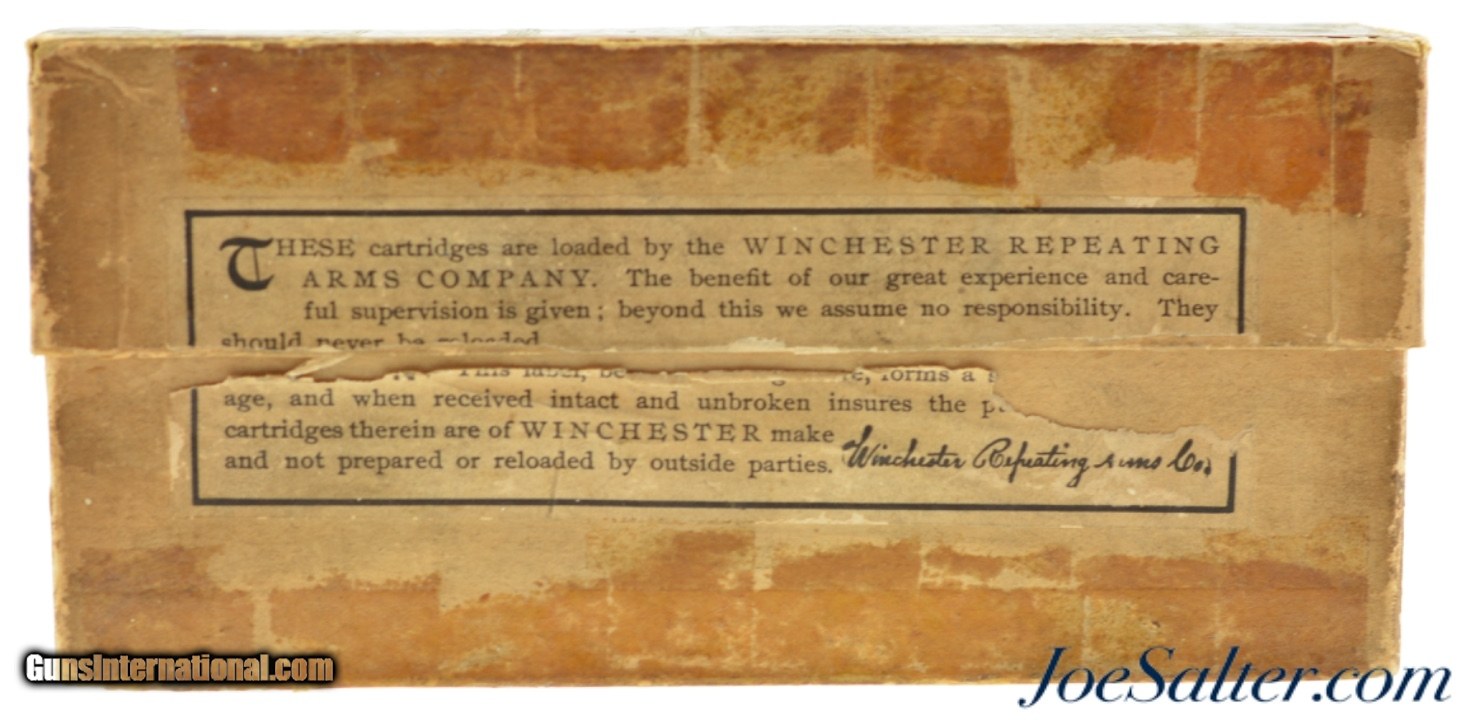 THESE cartridges are loaded by the WINCHESTER REPEATING
ARMS COMPANY. The benefit of our great experience and care-
ful supervision is given; beyond this we assume no responsibility. They
should never be reloaded
This label, forms a
age, and when received intact and unbroken insures the
cartridges therein are of WINCHESTER make
and not prepared or reloaded by outside parties. Winchester Repeating Arms Co.
GunsInternational.com
JoeSalter.com